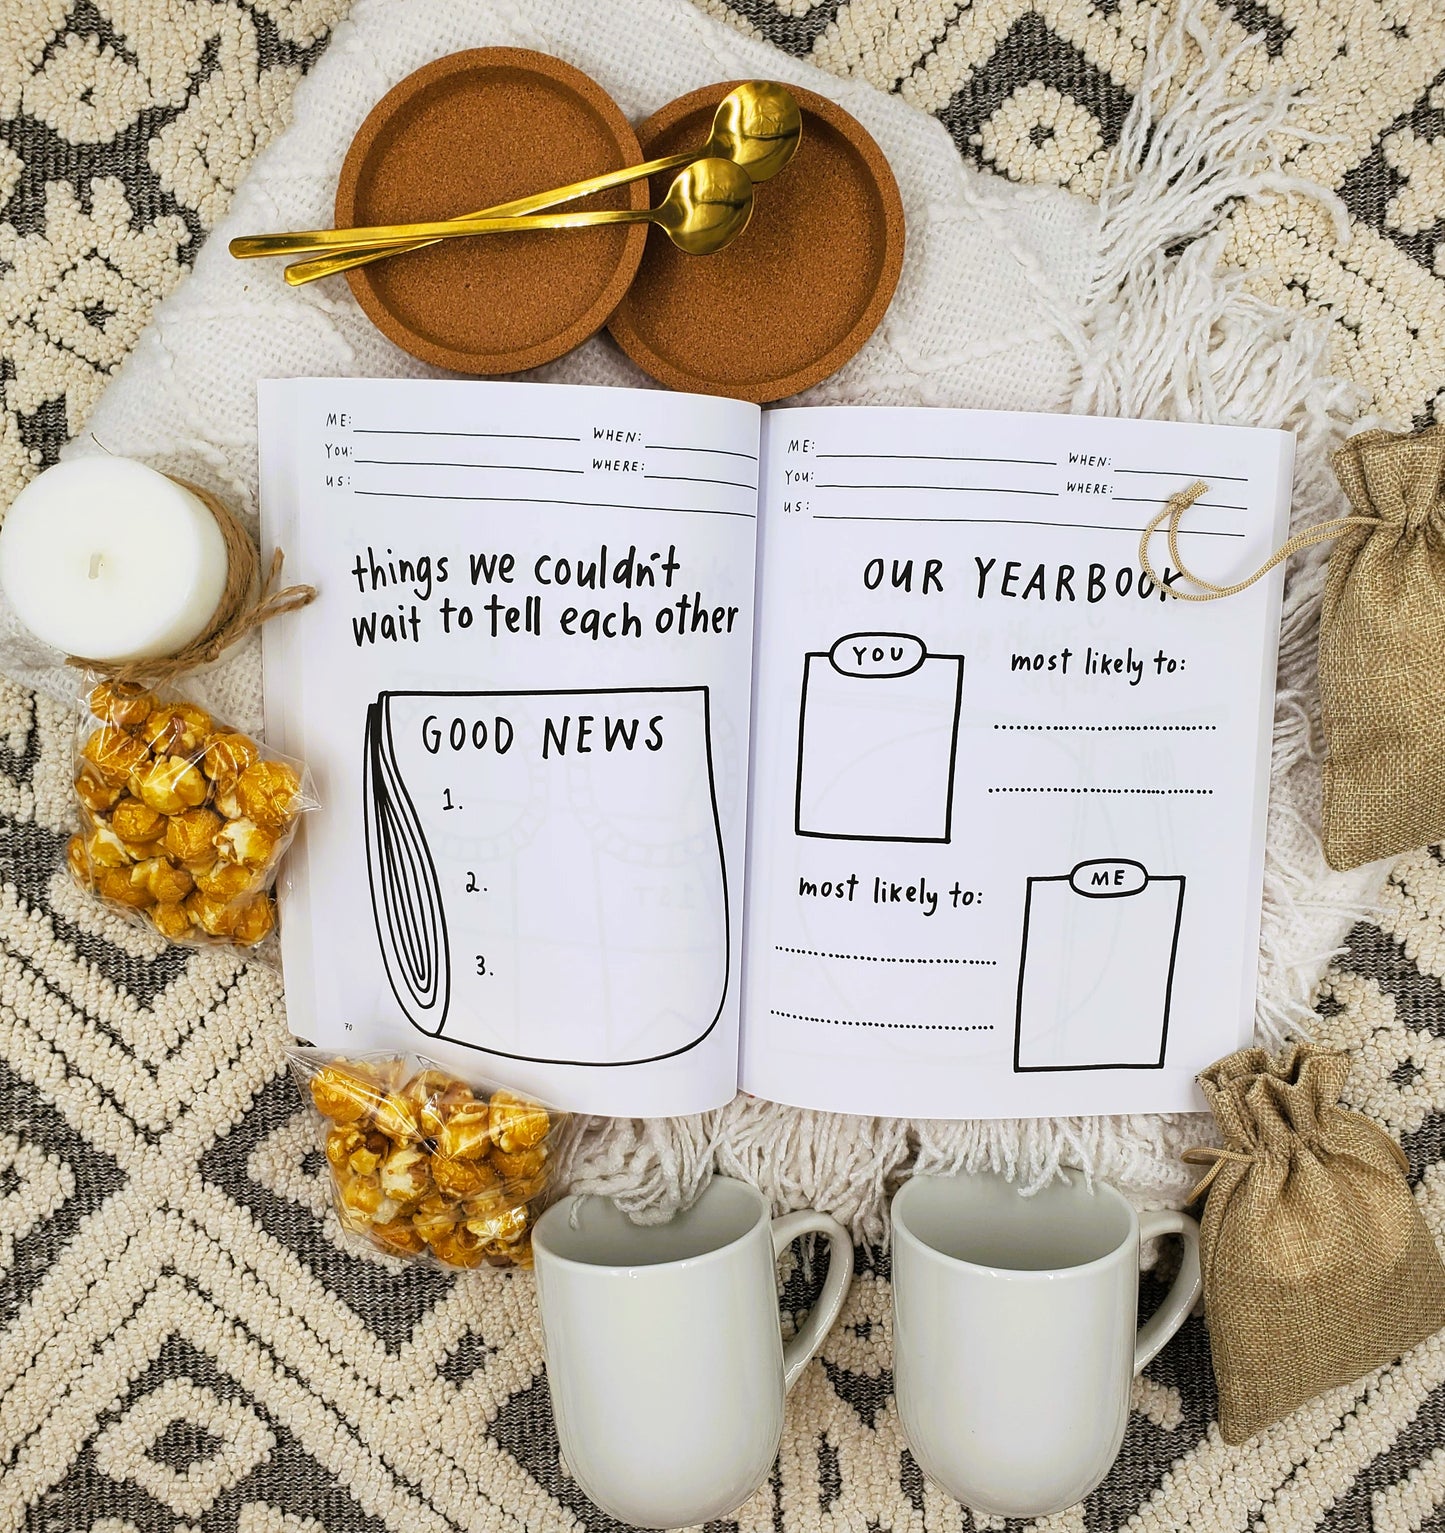 ME:
WHEN:
YOU:
WHERE:
US:
things we couldn't
wait to tell each other
GOOD NEWS
1.
2.
3.
70
ME:
WHEN:
YOU:
WHERE:
US:
OUR YEARBOOK
YOU
most likely to:
most likely to:
ME